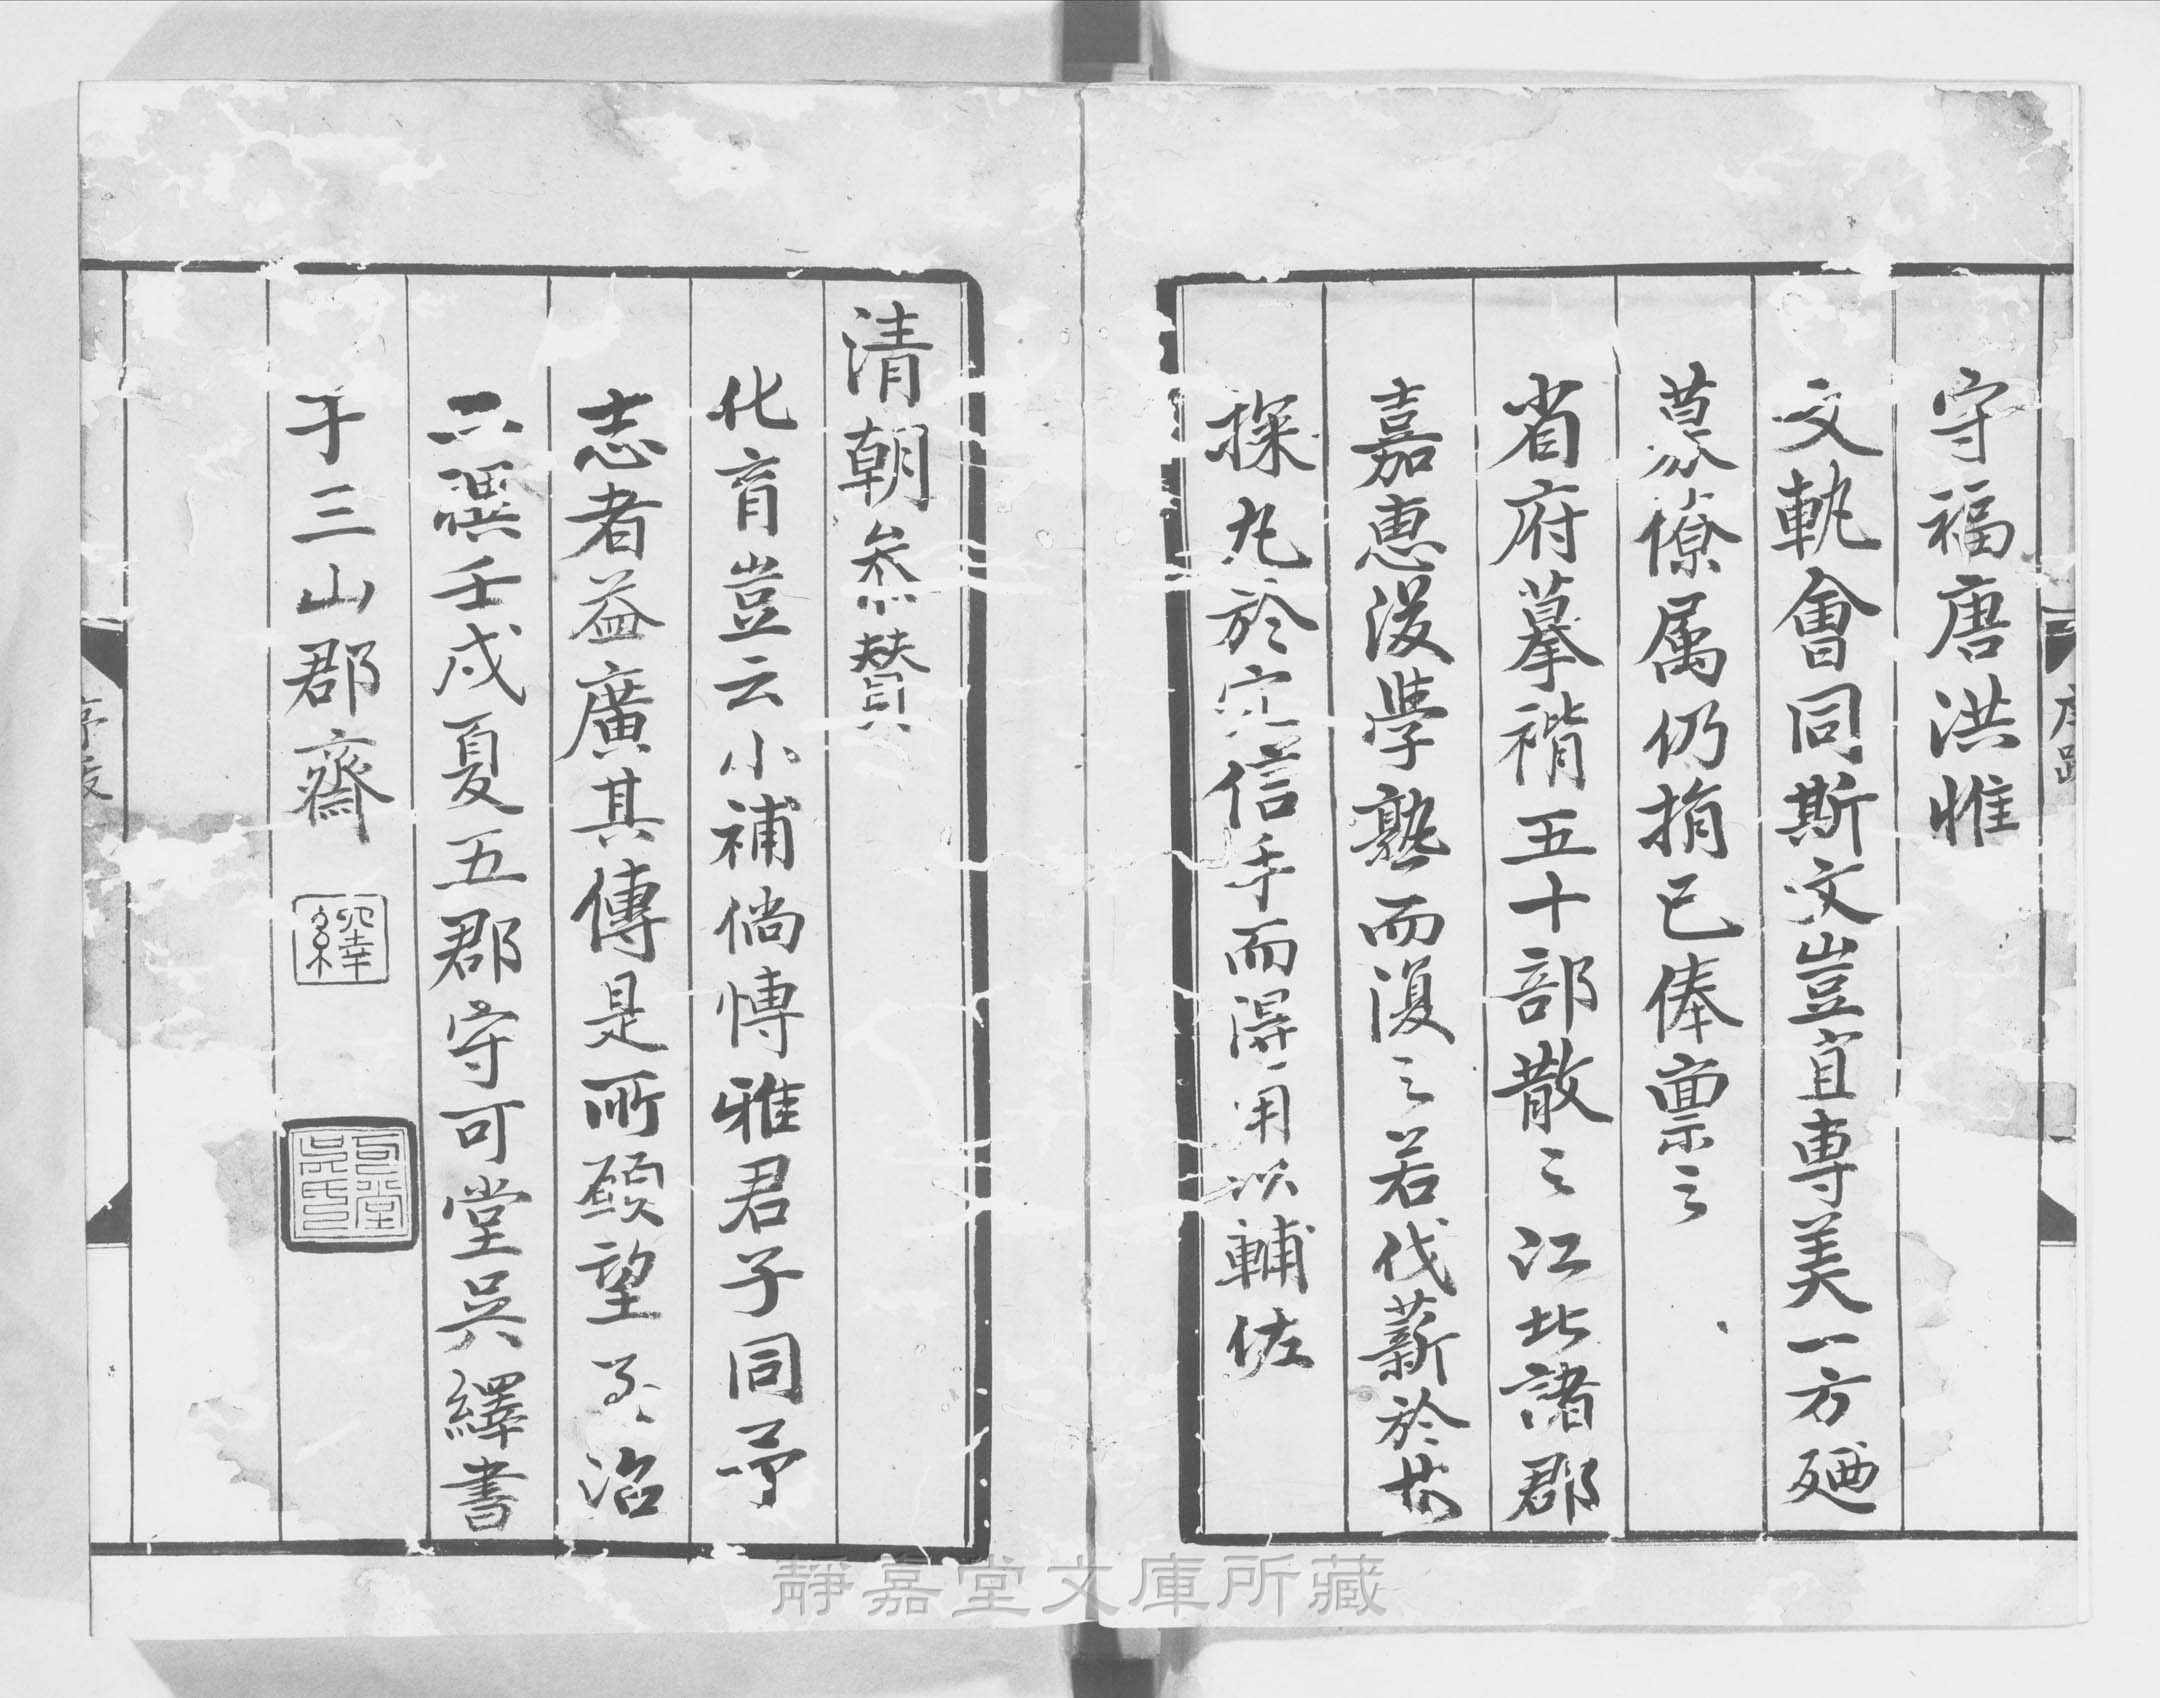 守福唐洪惟
文軌會同斯文豈宜專美一方廼
募僚属仍捐已俸禀之
省府摹褙五十部散之江北諸郡
嘉惠後學熟而復之若伐薪於林
探丸於穴信手而得用以輔佐
清朝叅賛
化育豈云小補倘博雅君子同予
志者益廣其傳是所願望至治
二禩壬戌夏五郡守可堂吳繹書
于三山郡齋
繹
序跋
靜嘉堂文庫所藏